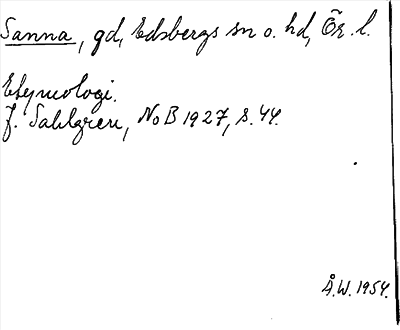 Sanna, gd, Edsbergs sn o. hd, Ör. l.
Etymologi.
J. Sahlgren, NoB 1927, s. 44.
Å.W. 1954.